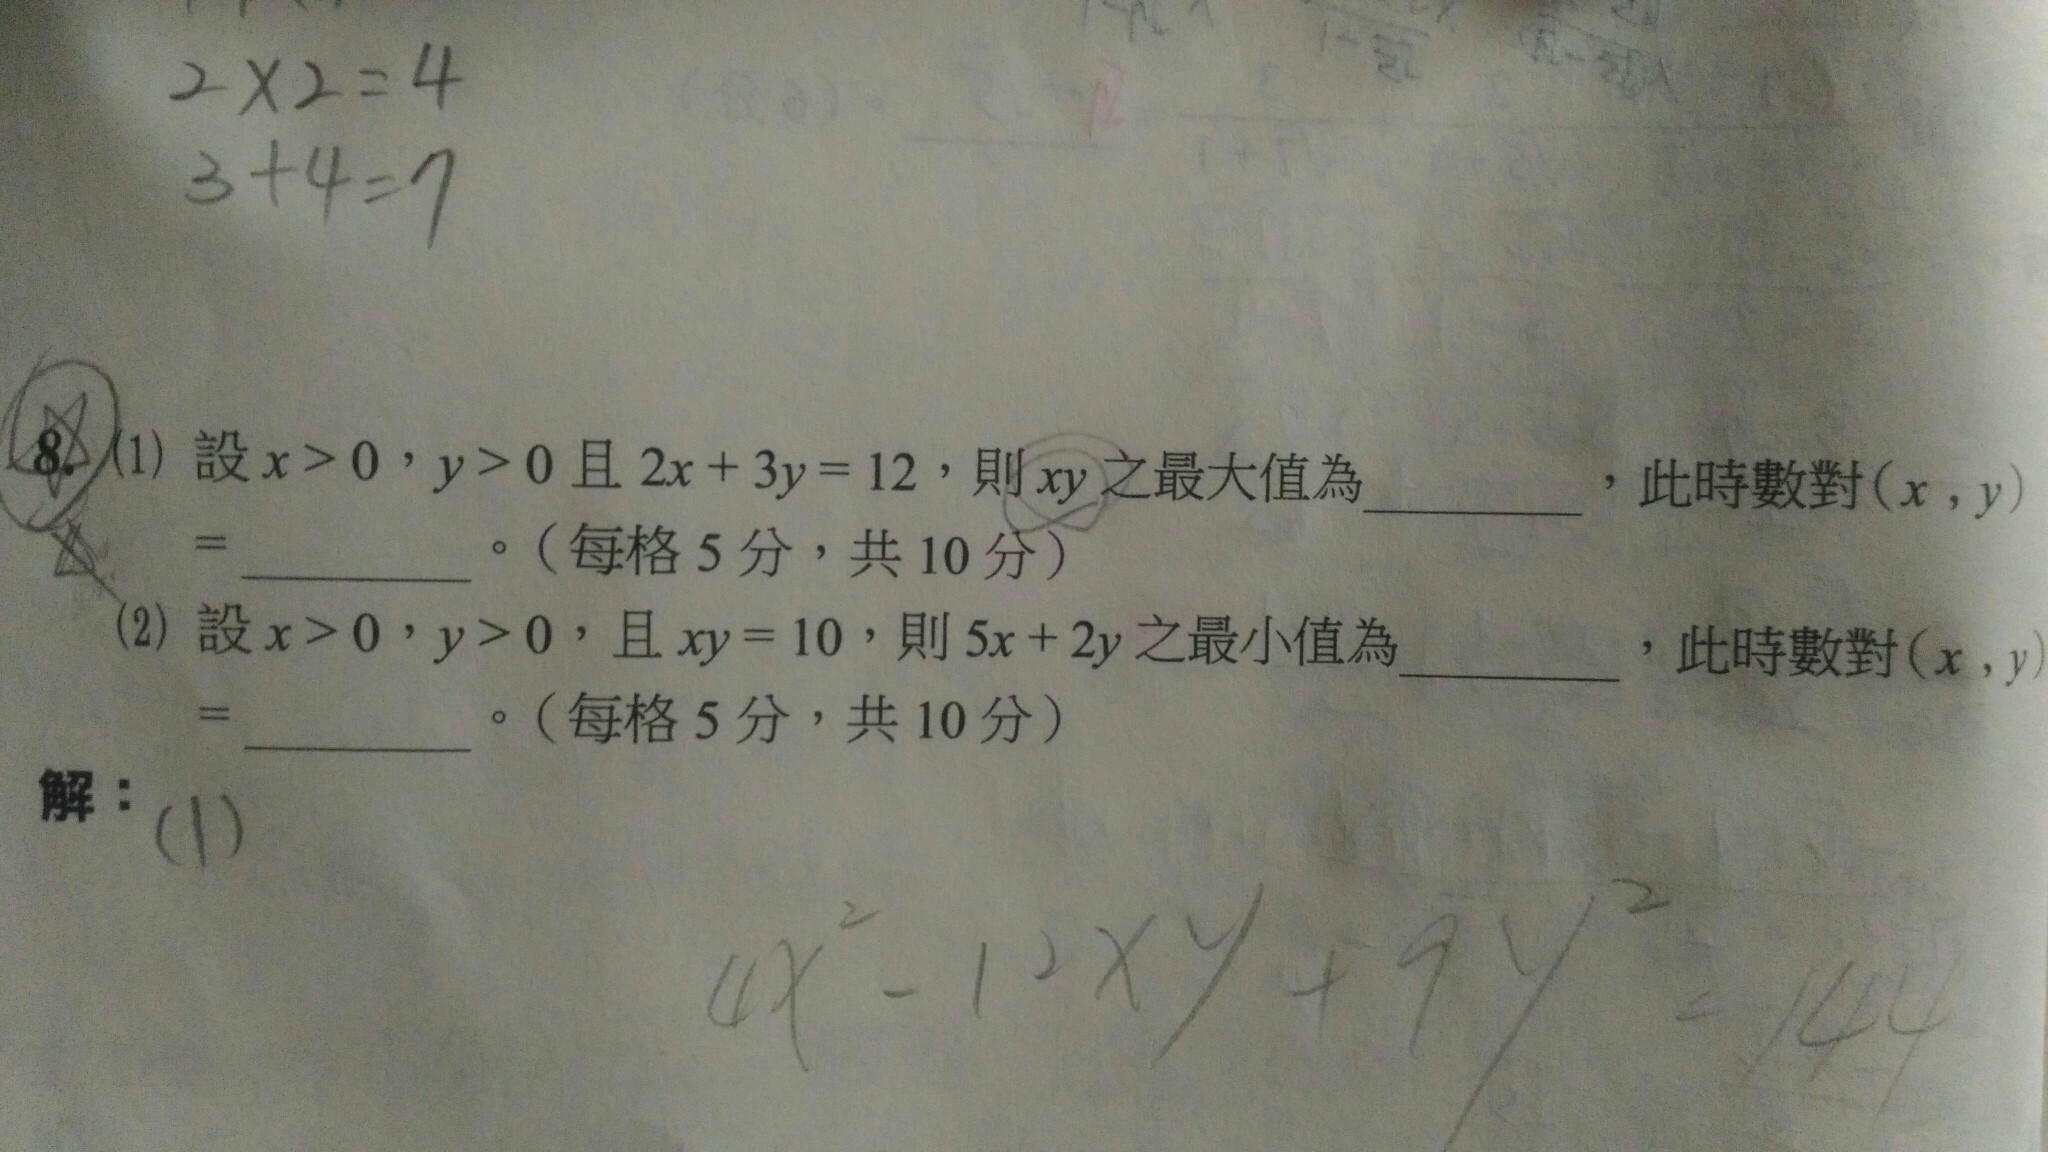 2×2=4
3+4=7
8. (1) 設 x > 0，y > 0 且 2x + 3y = 12，則 xy 之最大值為________，此時數對 ( x , y )
= ________。（每格 5 分，共 10 分）
(2) 設 x > 0，y > 0，且 xy = 10，則 5x + 2y 之最小值為________，此時數對 ( x , y )
= ________。（每格 5 分，共 10 分）
解：
(1)
4x² - 12xy + 9y² = 144